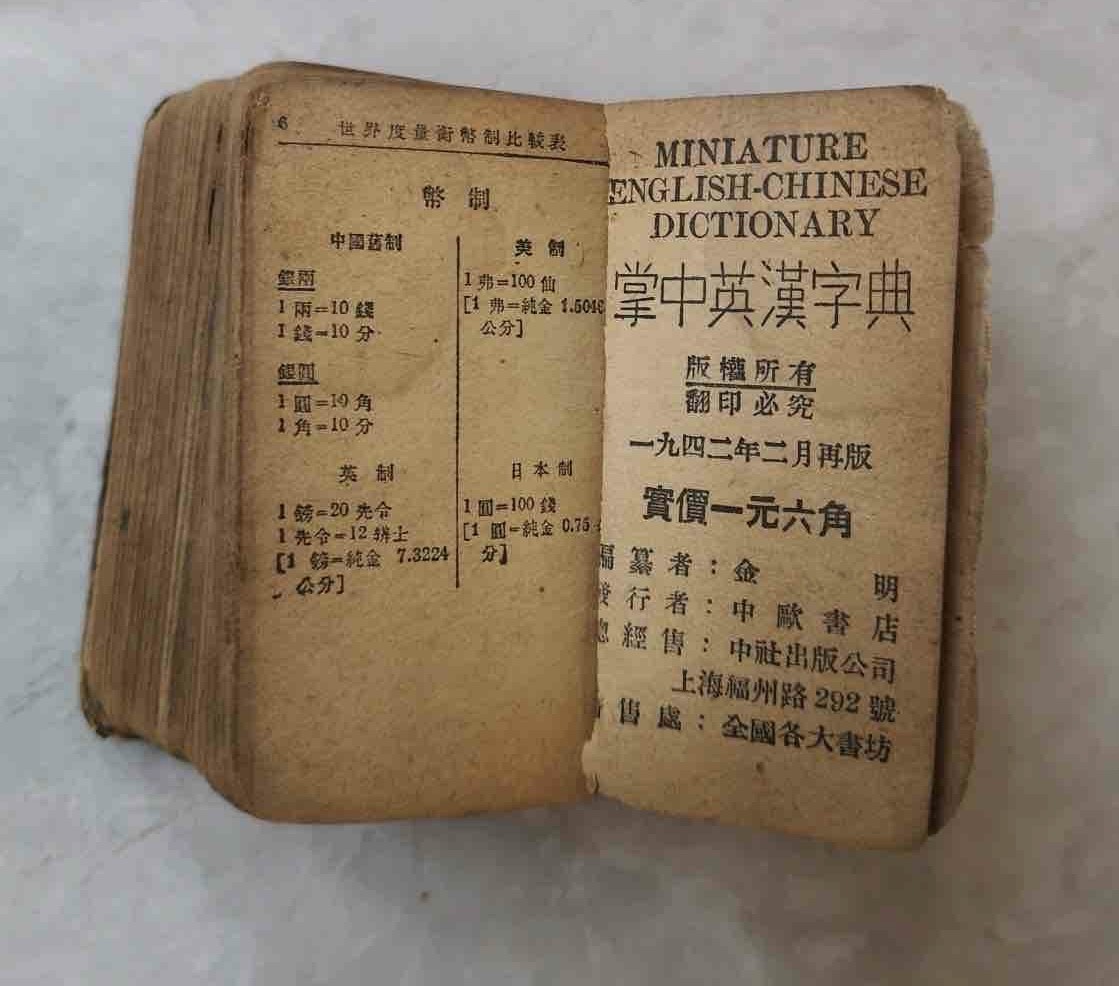 6 世界度量衡幣制比較表
幣制
中國舊制
銀兩
1 兩=10 錢
1 錢=10 分
銀圓
1 圓=10 角
1 角=10 分
美制
1 弗=100 仙
[1 弗=純金 1.5046
公分]
英制
1 鎊=20 先令
1 先令=12 辨士
[1 鎊=純金 7.3224
公分]
日本制
1 圓=100 錢
[1 圓=純金 0.75
分]
MINIATURE
ENGLISH-CHINESE
DICTIONARY
掌中英漢字典
版權所有
翻印必究
一九四二年二月再版
實價一元六角
編纂者：金明
發行者：中歐書店
總經售：中社出版公司
上海福州路 292 號
售處：全國各大書坊